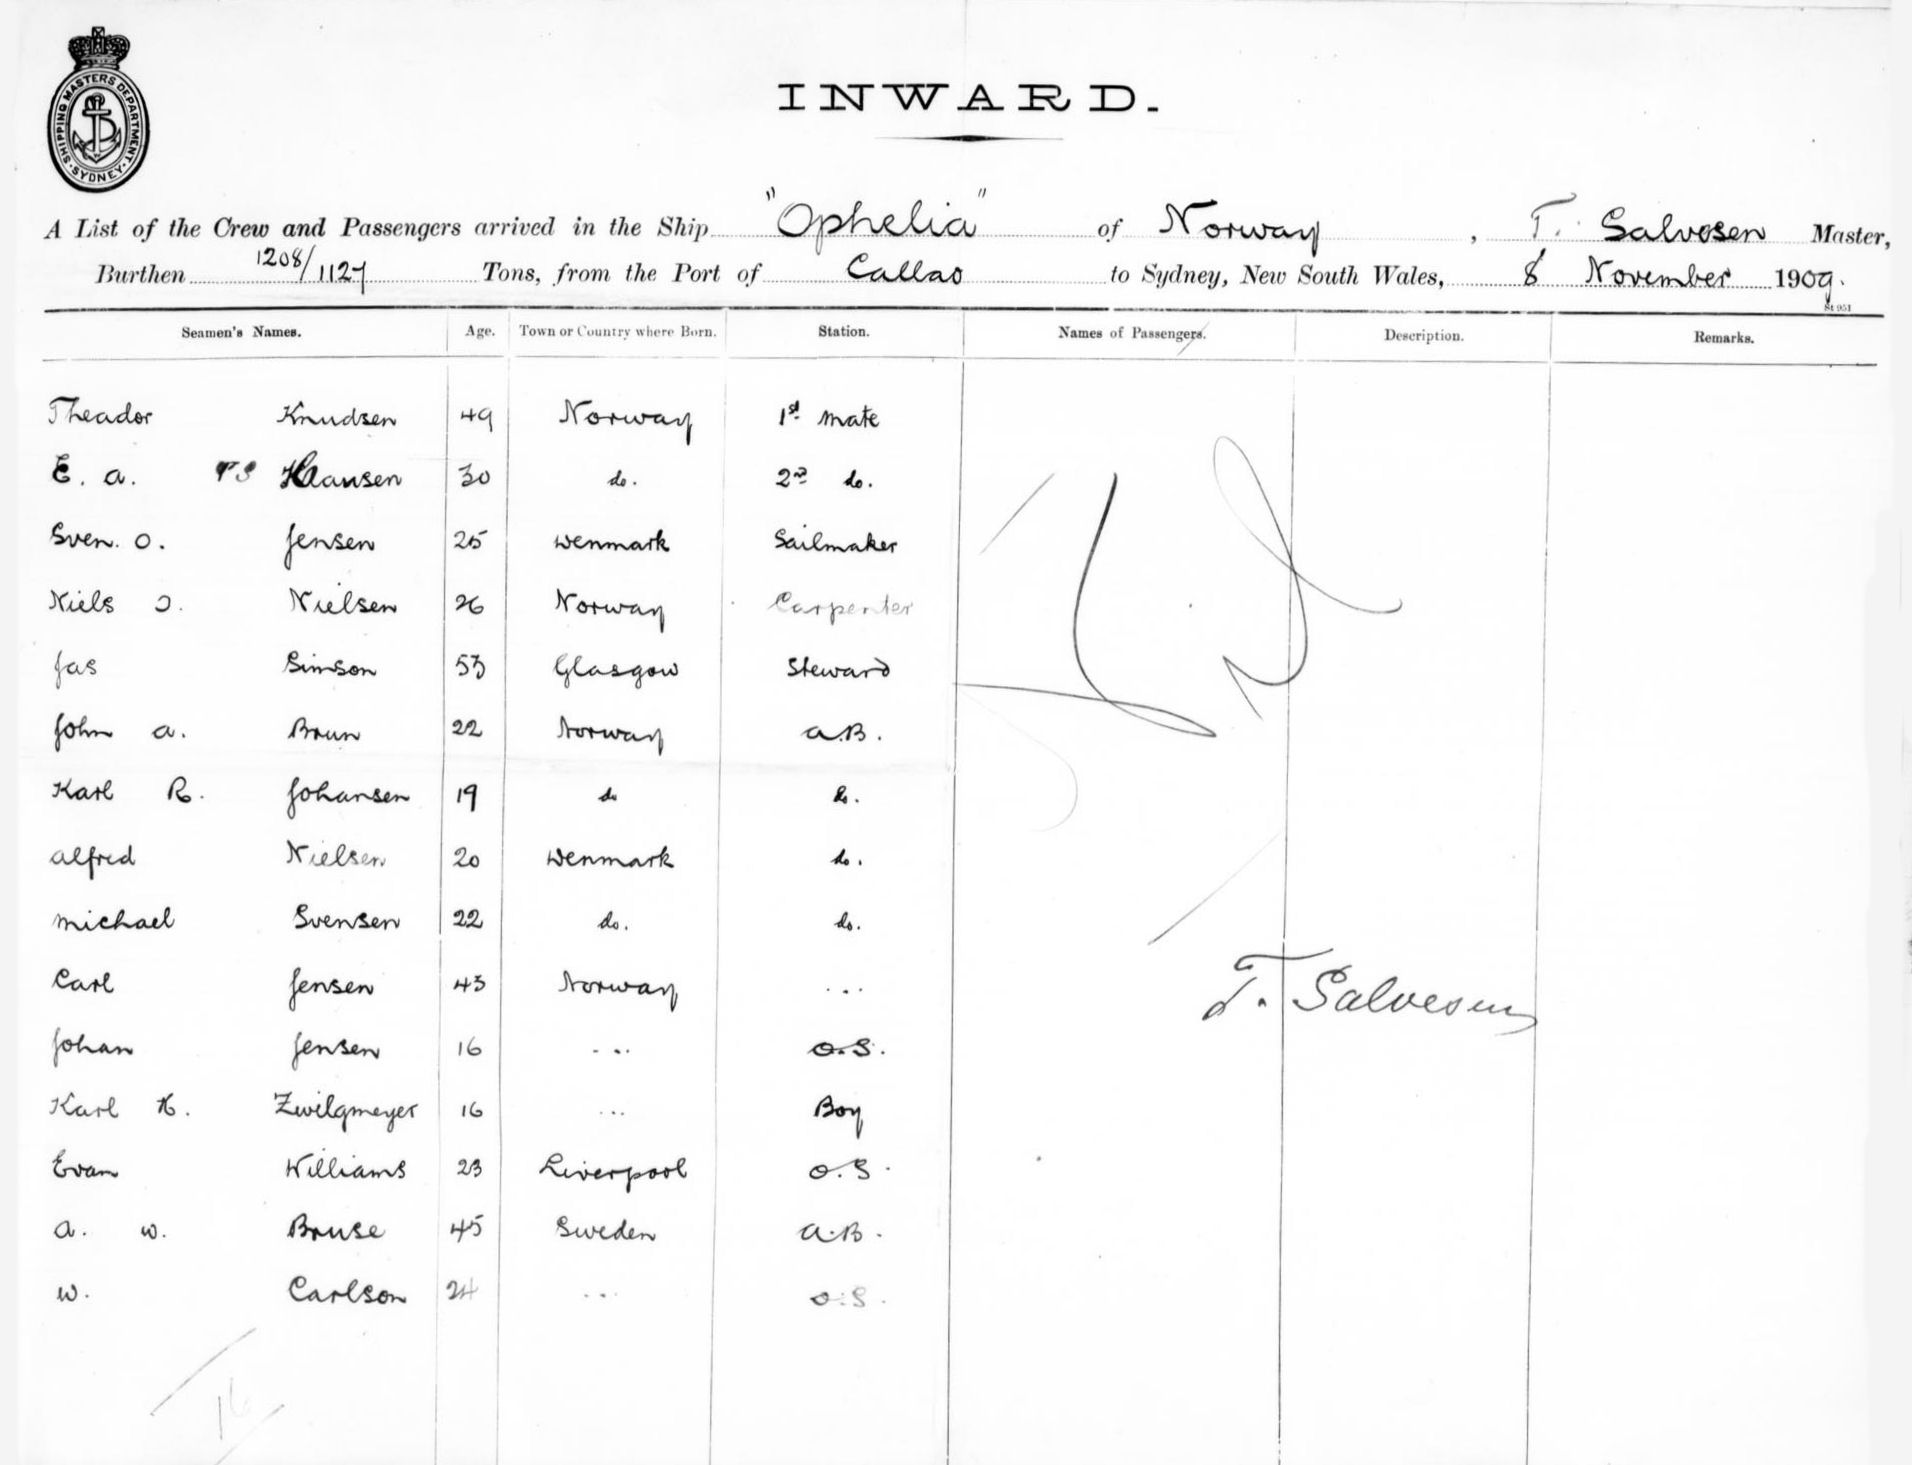 SHIPPING MASTERS DEPARTMENT. SYDNEY.
INWARD.
A List of the Crew and Passengers arrived in the Ship "Ophelia" of Norway, T. Salvesen Master,
Burthen 1208/1127 Tons, from the Port of Callao to Sydney, New South Wales, 8 November 1909.
St 951
Seamen's Names. Age. Town or Country where Born. Station. Names of Passengers. Description. Remarks.
Theador Knudsen 49 Norway 1st mate
E. a. Hansen 30 do. 2nd do.
Sven. O. Jensen 25 Denmark Sailmaker
Niels J. Nielsen 26 Norway Carpenter
Jas Simson 53 Glasgow Steward
John a. Brun 22 Norway a.B.
Karl R. Johansen 19 do do.
alfred Nielsen 20 Denmark do.
michael Svensen 22 do. do.
Carl Jensen 43 Norway ...
Johan Jensen 16 ... O.S.
Karl H. Zwilgmeyer 16 ... Boy
Evan Williams 23 Liverpool O.S.
a. W. Bruse 45 Sweden a.B.
W. Carlson 24 ... O.S.
Nil
T. Salvesen
16